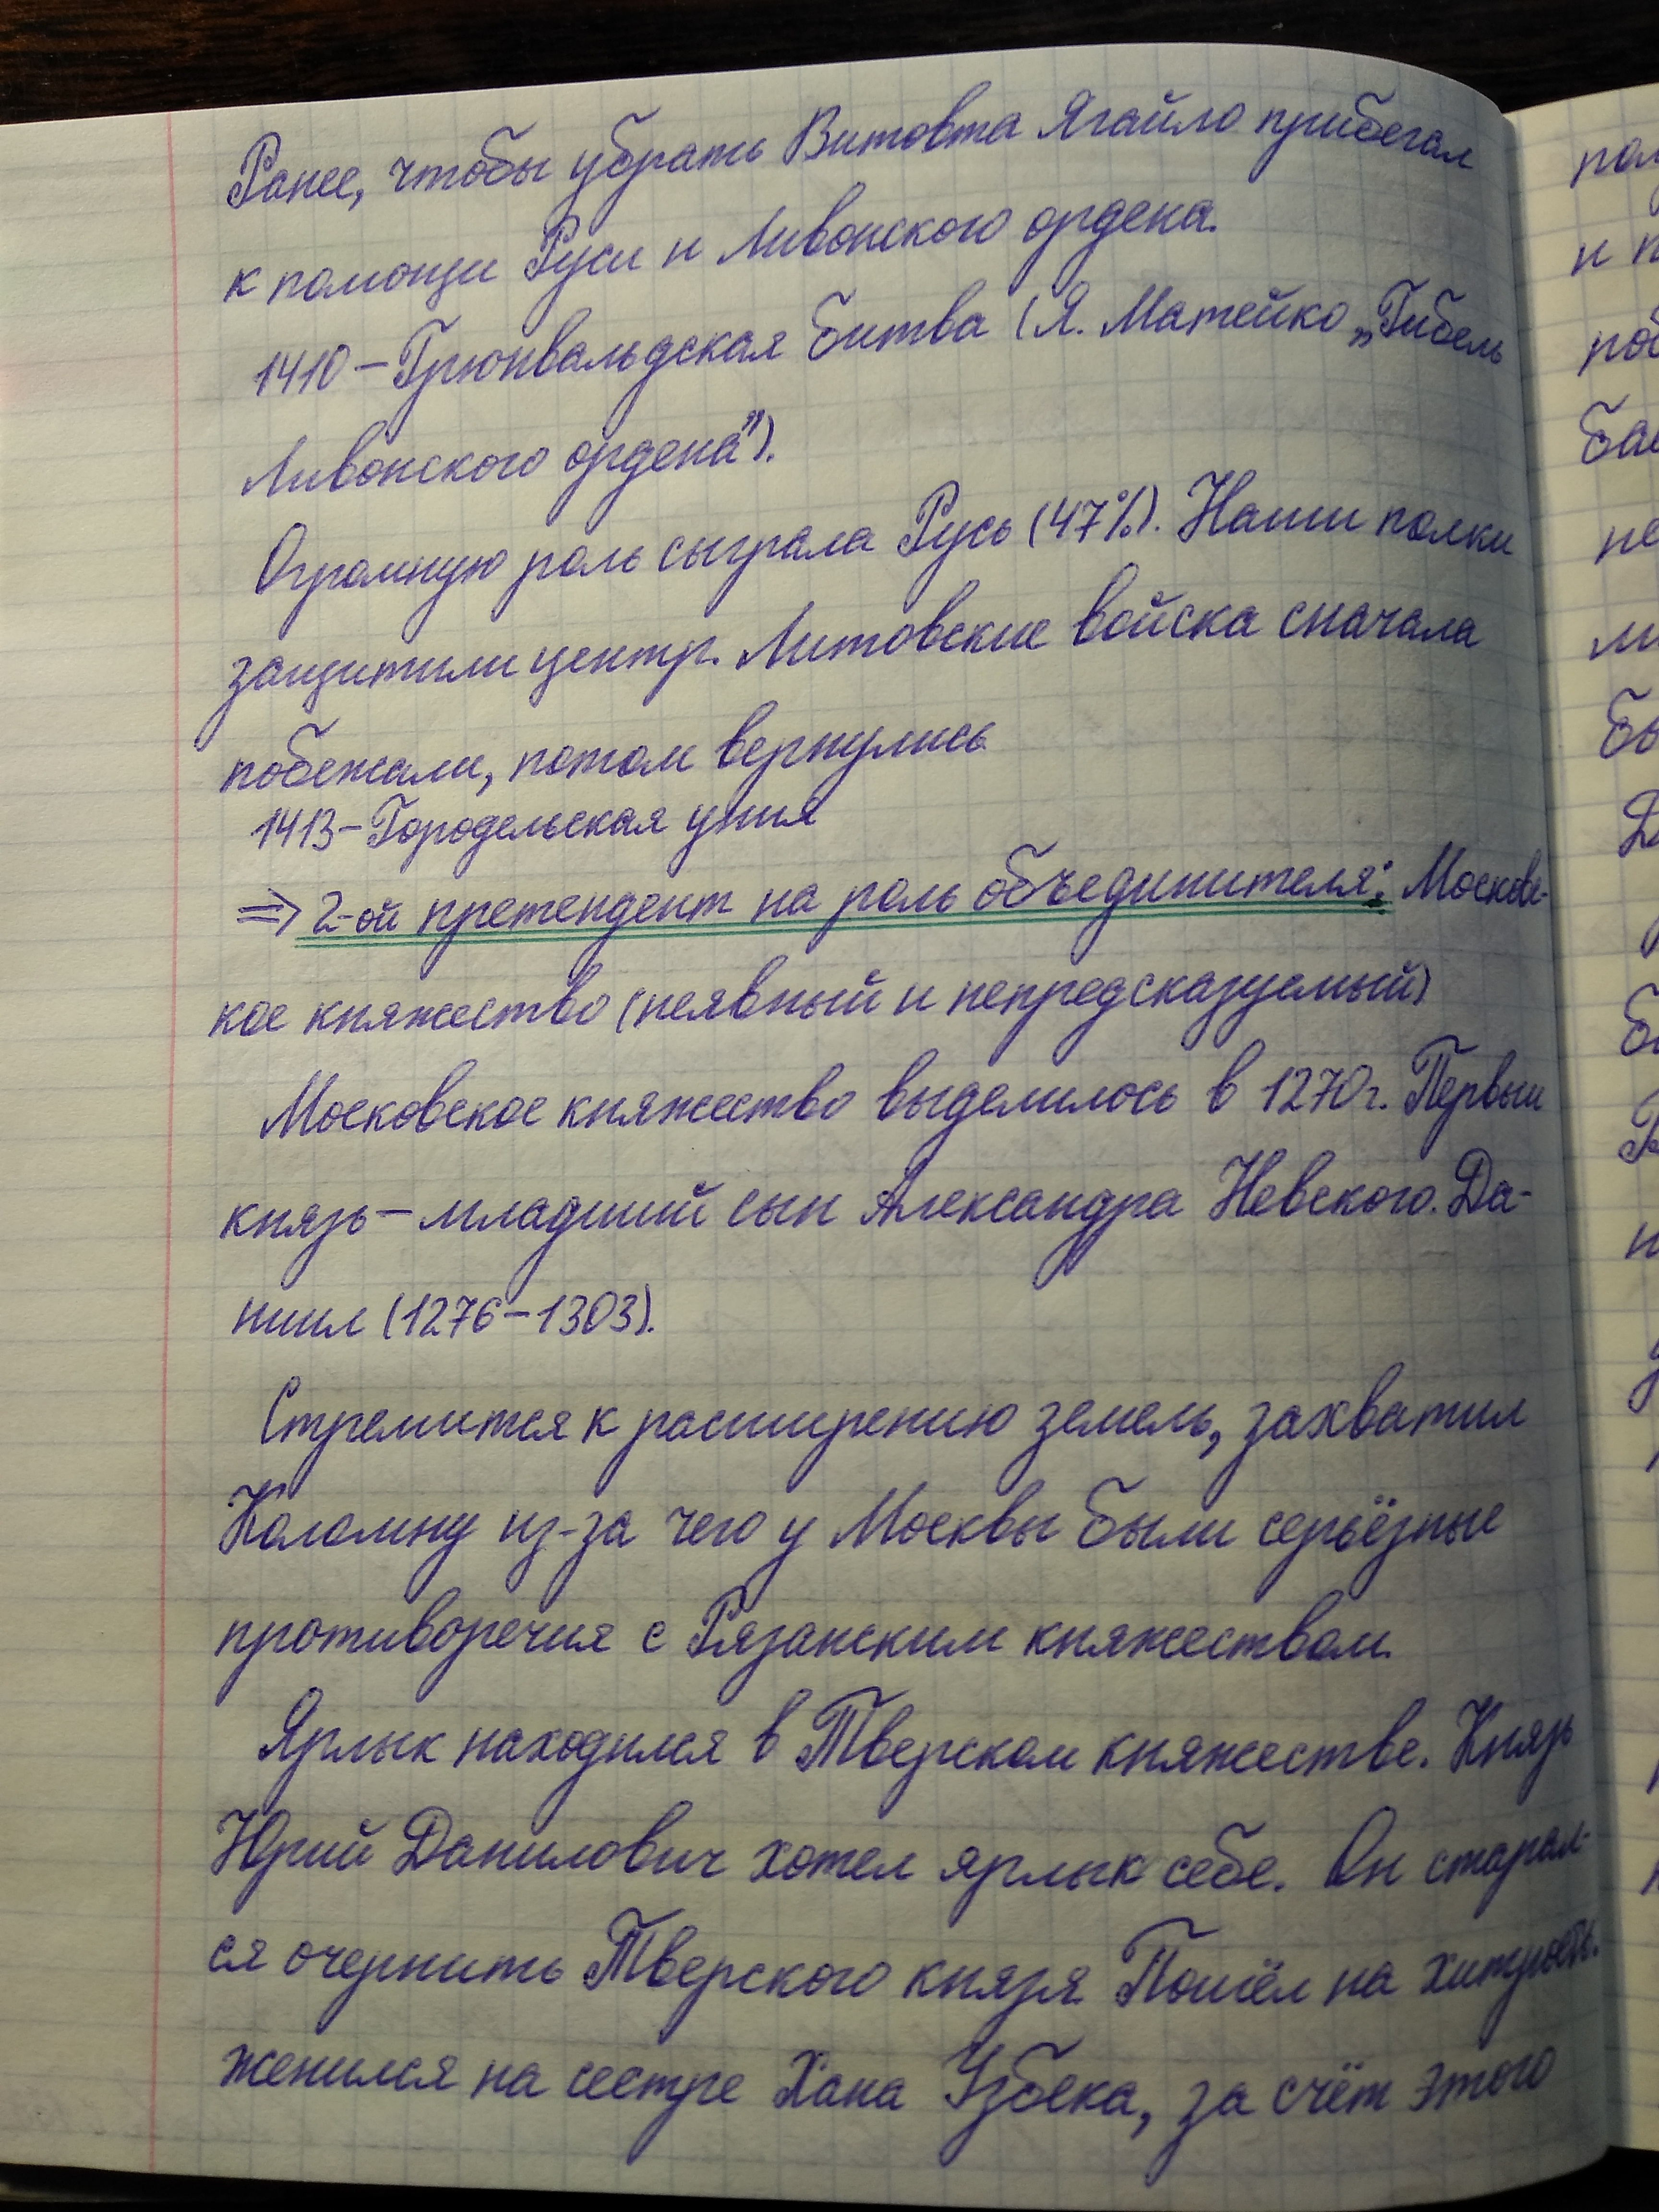 Ранее, чтобы убрать Витовта Ягайло прибегал
к помощи Руси и Ливонского ордена.
1410 – Грюнвальдская битва (Я. Матейко „Гибель
Ливонского ордена").
Огромную роль сыграла Русь (47%). Наши полки
защитили центр. Литовские войска сначала
побежали, потом вернулись
1413 – Городельская уния
⇒ 2-ой претендент на роль объединителя: Московс-
кое княжество (неявный и непредсказуемый)
Московское княжество выделилось в 1270г. Первый
князь – младший сын Александра Невского. Да-
ниил (1276 – 1303).
Стремится к расширению земель, захватил
Коломну из-за чего у Москвы были серьёзные
противоречия с Рязанским княжеством.
Ярлык находился в Тверском княжестве. Князь
Юрий Данилович хотел ярлык себе. Он старал-
ся очернить Тверского князя Пошёл на хитрость.
женился на сестре Хана Узбека, за счёт этого
пол
и п
поб
ба
не
ли
бы